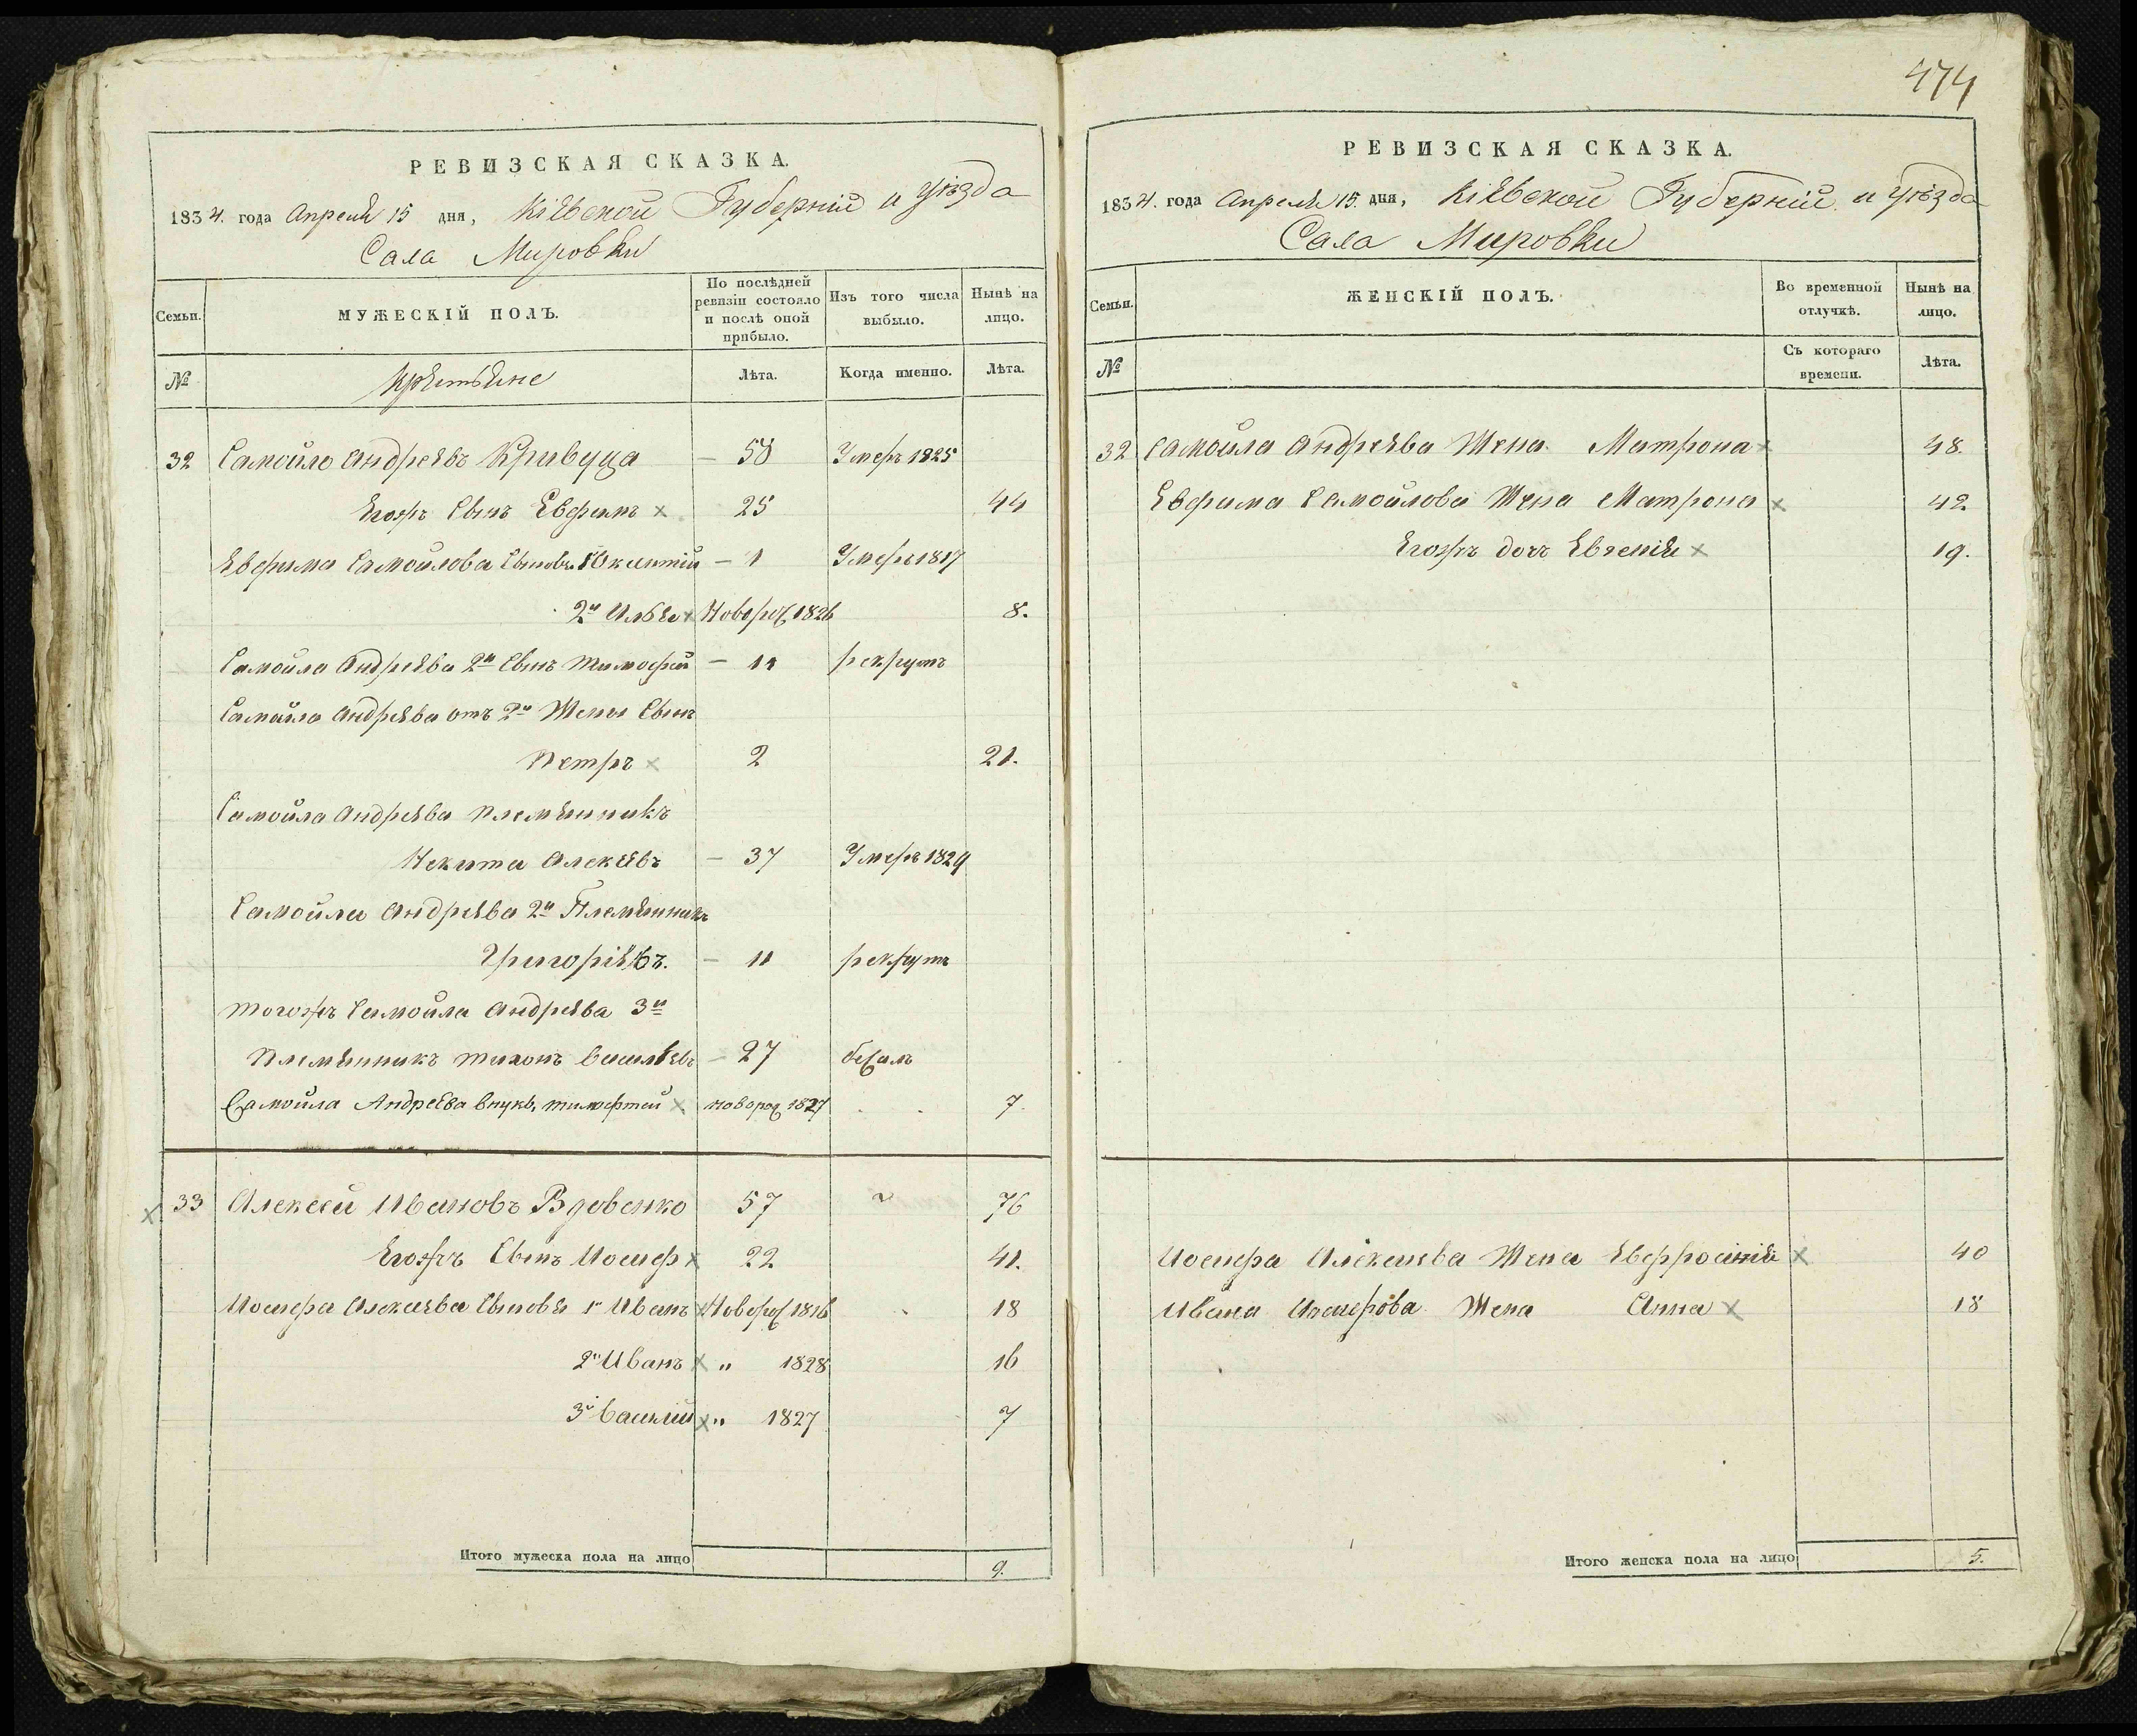 474
РЕВИЗСКАЯ СКАЗКА.
1834. года Апреля 15 дня, Кіевской Губерніи и уѣзда
Сала Мировки
Семьи.
МУЖЕСКІЙ ПОЛЪ.
По послѣдней ревизіи состояло и послѣ оной прибыло.
Изъ того числа выбыло.
Нынѣ на лицо.
№
Лѣта.
Когда именно.
Лѣта.
32 Самойло Андреевъ Кривуца — 58 Умеръ 1825
Егожъ Сынъ Евфимъ 25 44
Евфима Самойлова Сыновья 1 — 1 Умеръ 1817
2й Илья Новорож 1826 8.
Самойла Андреева 2й Сынъ Тимофей — 11 рекрутъ
Самойла Андреева отъ 2й Жены Сынъ
Петръ 2 21.
Самойла Андреева племянникъ
Некита Алекеевъ — 37 Умеръ 1829
Самойла Андреева 2й Племянникъ
Григоріевъ. — 11 рекрутъ
Тогожъ Самойла Андреева 3й
племянникъ Тихонъ Васильевъ — 27 бежалъ
Самойла Андреева внукъ Тимофтей новорож 1827 7.
33 Алексей Ивановъ Вдовенко 57 76
Егожъ Сынъ Иосиф 22 41.
Иосифа Алексеева Сыновья 1й Иванъ Новорож 1816 18
2й Иванъ " 1828 16
3й Василий " 1827 7
Итого мужеска пола на лицо 9.
РЕВИЗСКАЯ СКАЗКА.
1834. года Апреля 15. дня, Кіевской Губерніи и уѣзда
Сала Мировки
Семьи.
ЖЕНСКІЙ ПОЛЪ.
Во временной отлучкѣ.
Нынѣ на лицо.
№
Съ котораго времени.
Лѣта.
32 Самойла Андреева Жена Матрона 48.
Евфима Самойлова Жена Матрона 42
Егожъ дочь Евгенія 19.
Иосифа Алексеева Жена Евфросинія 40
Ивана Иосифова Жена Анна 18
Итого женска пола на лицо 5.